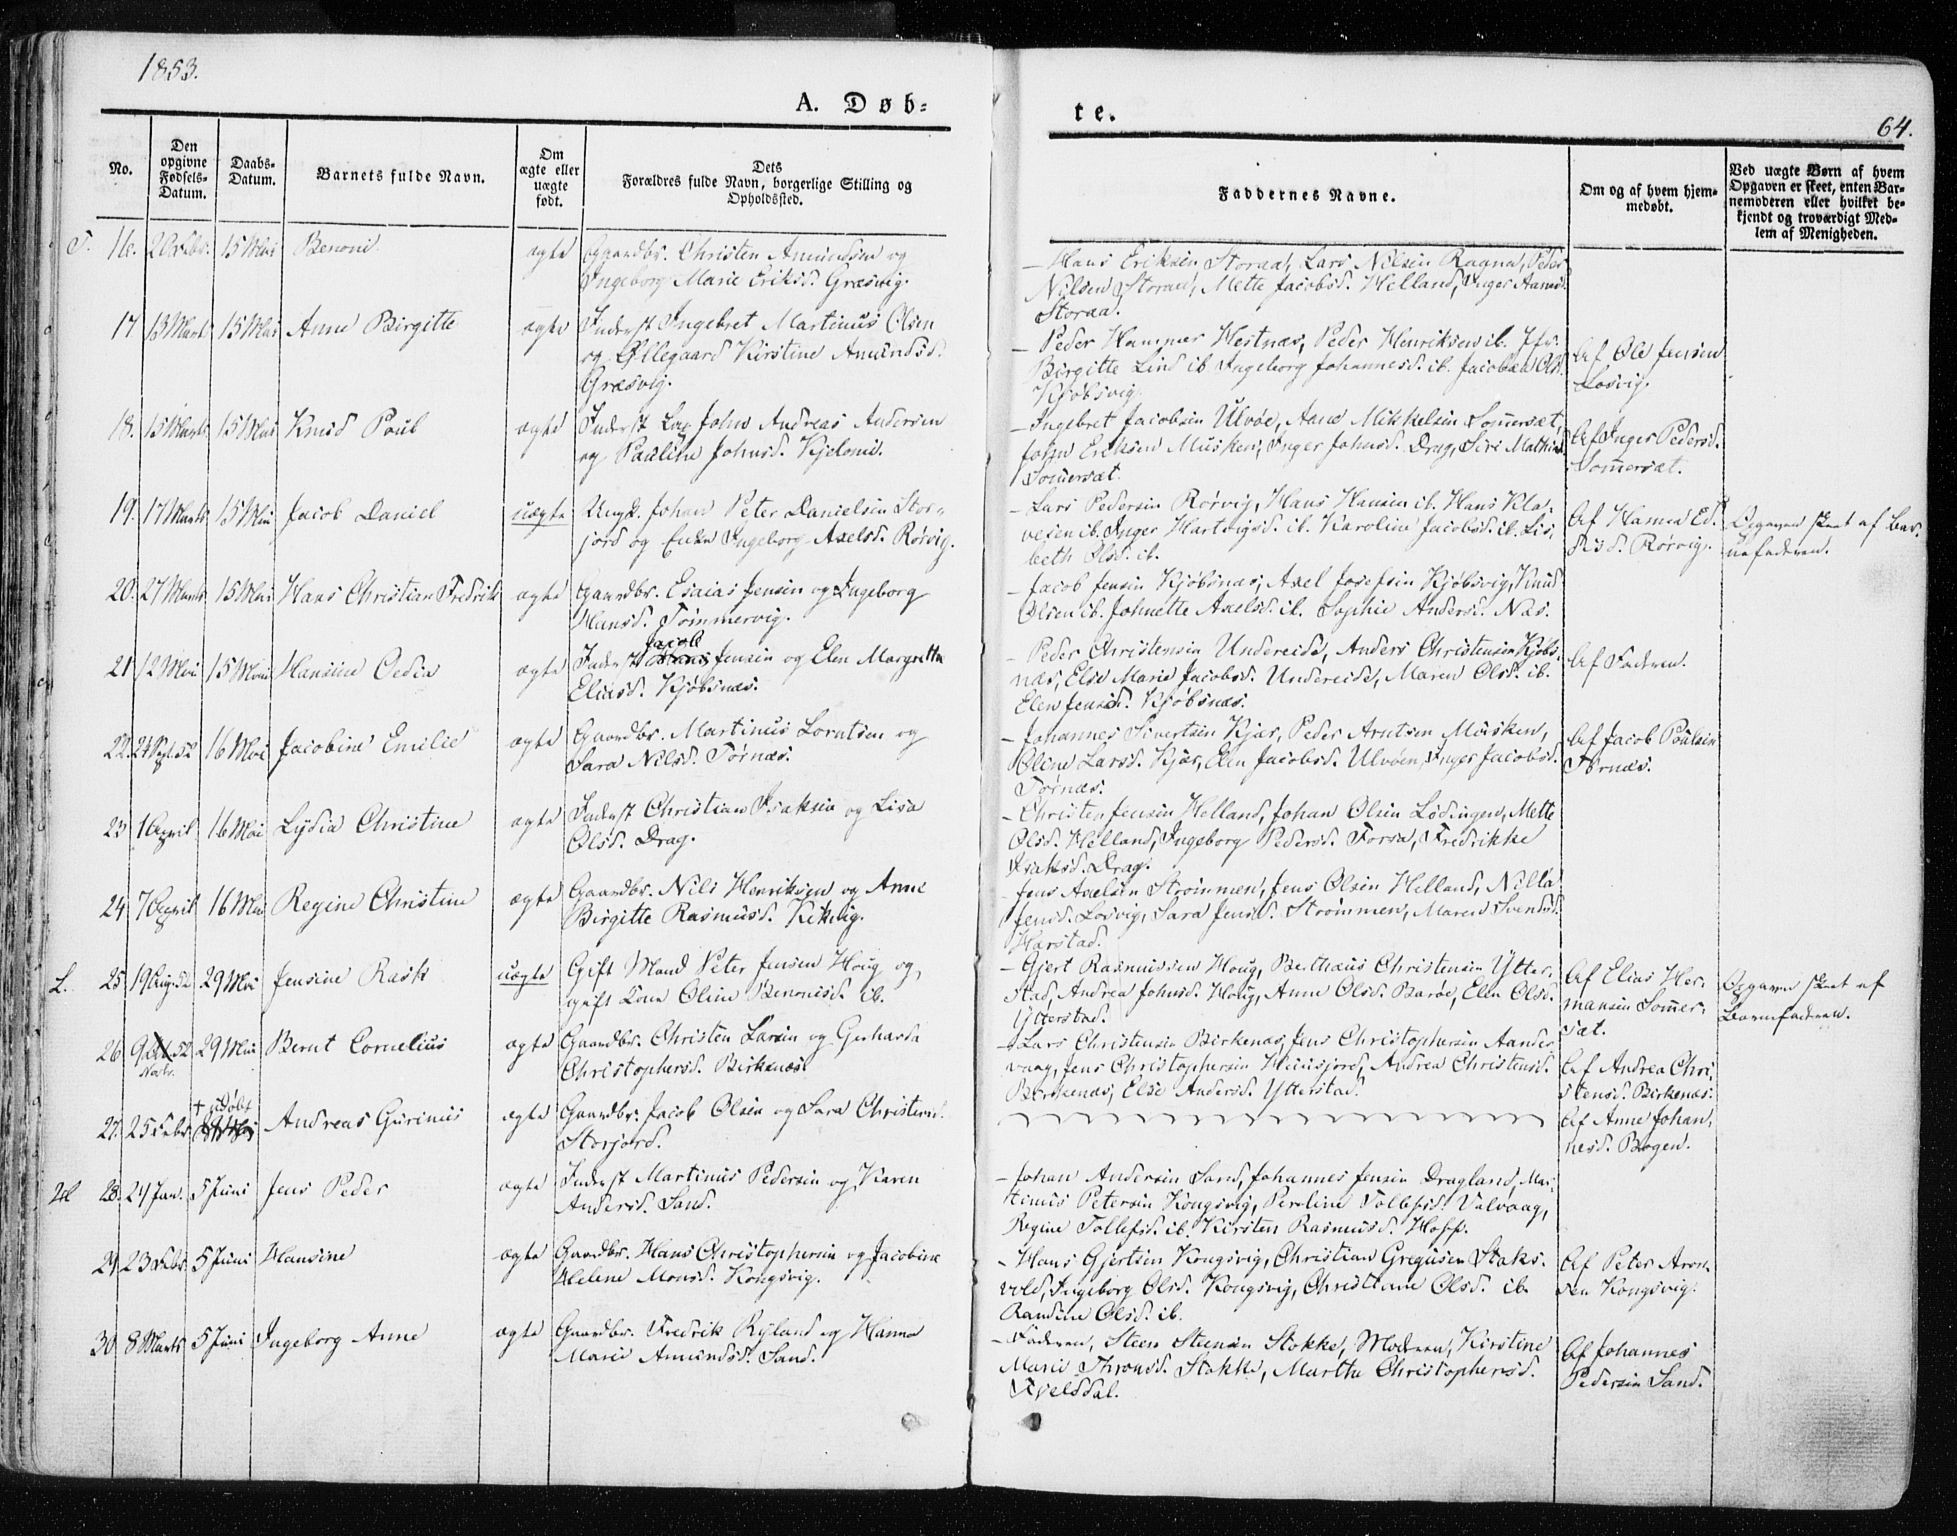 1853.
A. Døb=
te.
64.
No.
Den opgivne Fødsels-Datum.
Daabs-Datum.
Barnets fulde Navn.
Om ægte eller uægte født.
Dets Forældres fulde Navn, borgerlige Stilling og Opholdssted.
Faddernes Navne.
Om og af hvem hjemmedøbt.
Ved uægte Børn af hvem Opgaven er skeet, enten Barnemoderen eller hvilket bekjendt og troværdigt Medlem af Menigheden.
T. 16. 15 Mai Benoni ægte Gaardbr. Christen Amundsen og
Ingeborg Marie Eriksd. Græsvig.
– Hans Eriksen Storaa, Lars Nilsen Ragna, Peder
Nilsen Storaa, Mette Jacobsd. Helland, Inger
Storaa.
17 13 Marts 15 Mai Anne Birgitte ægte Inderst Ingebret Martinus Olsen
og Øllegaard Kirstine Amundsd.
Græsvig.
– Peder Hammer Hestnæs, Peder Henriksen ib. Jfr.
Birgitte Lind ib Ingeborg Johannesd. ib. Jacobæa Olsd.
Kjøbsvig.
Af Ole Jensen
Losvig.
18. 15 Marts 15 Mai Knud Poul ægte Inderst Lap John Andreas Andersen
og Pauline Johnsd. Kjelvmd.
– Ingebret Jacobsen Ulvøe, Aane Mikkelsen Somersæt,
John Eriksen Musken, Inger Johnsd. Drag, Siri Mathisd.
Somersæt.
Af Inger Pedersd.
Somersæt.
19. 17 Marts 15 Mai Jacob Daniel uægte Ungk. Johan Peter Danielsen Stor-
jord og Enke Ingeborg Axelsd. Rørvig.
– Lars Pedersen Rørvig, Hans Hansen ib. Hans Kla-
vesen ib. Inger Hartvigsd. ib. Karoline Jacobsd. ib. Lis-
beth Olsd. ib.
Af Hanna Ed.
Rørvig.
Opgaven skeet af Bar-
nefaderen.
20. 27 Marts 15 Mai Hans Christian Fredrik ægte Gaardbr. Esaias Jensen og Ingeborg
Hansd. Tømmervig.
– Jacob Jensen Kjøbsnæs, Axel Josefsen Kjøbsvig, Knud
Olsen ib. Johnette Axelsd. ib. Sophie Andersd. Næs.
21 12 Mai 15 Mai Hansine Oedia ægte Inderst Jacob Jensen og Elen Margrethe
Eliasd. Kjøbsnæs.
– Peder Christensen Undereide, Anders Christensen Kjøbs-
næs, Else Marie Jacobsd. Undereide, Maren Olsd. ib.
Elen Jensd. Kjøbsnæs.
Af Faderen.
22. 24 Sept. 52 16 Mai Jacobine Emilie ægte Gaardbr. Martinus Lorntsen og
Sara Nilsd. Tørnæs.
– Johannes Sivertsen Kjær, Peder Arntsen Musken,
Oline Larsd. Kjær, Elen Jacobsd. Ulvøen, Inger Jacobsd.
Tørnæs.
Af Jacob Poulsen
Tørnæs.
23 1 April 16 Mai Lydia Christine ægte Inderst Christian Isaksen og Lisa
Olsd. Drag.
– Christen Jensen Helland, Johan Olsen Lødingen, Mette
Olsd. Helland, Ingeborg Pedersd. Forsa, Fredrikke
Isaksd. Drag.
24 7 April 16 Mai Regine Christine ægte Gaardbr. Nils Henriksen og Anne
Birgitte Rasmusd. Kikvig.
– Jens Axelsen Strømmen, Jens Olsen Helland, Nilla
Jensd. Losvig, Sara Jensd. Strømmen, Maren Svendsd.
Harstad.
L. 25 19 Aug. 52 29 Mai Jensine Rask uægte Gift Mand Peter Jensen Houg og
gift Kone Oline Benonisd. ib.
– Gjert Rasmussen Houg, Berthæus Christensen Ytter-
stad, Andrea Johnsd. Houg, Anne Olsd. Barøe, Elen Olsd.
Ytterstad.
Af Elias Her-
mansen Somer-
sæt.
Opgaven skeet af
Barnefaderen.
26 9 Novbr. 52 29 Mai Bernt Cornelius ægte Gaardbr. Christen Larsen og Gerharda
Christophersd. Birkenæs.
– Lars Christensen Birkenæs, Jens Christophersen Aander-
vaag, Jens Christophersen Heiisjord, Andrea Christensd.
Birkenæs, Else Andersd. Ytterstad.
Af Andrea Chri-
stensd. Birkenæs.
27. 25 Febr. + udøbt Andreas Gurinius ægte Gaardbr. Jacob Olsen og Sara Christensd.
Storjord.
Af Anne Johan-
nesd. Bogen.
28. 24 Jan. 5 Juni Jens Peder ægte Inderst Martinus Pedersen og Karen
Andersd. Sand.
– Johan Andersen Sand, Johannes Jensen Dragland, Mar-
tinus Petersen Kongsvig, Peroline Tollefsd. Valvaag,
Regine Tollefsd. ib. Kirsten Rasmusd. Hoff.
29 23 Febr. 5 Juni Hansine ægte Gaardbr. Hans Christophersen og Jacobine
Helene Monsd. Kongsvig.
– Hans Gjertsen Kongsvig, Christian Gregusen Staks-
vold, Ingeborg Olsd. Kongsvig, Christiane Olsd. ib.
Randine Olsd. ib.
Af Peter Aron-
sen Kongsvig.
30 8 Marts 5 Juni Ingeborg Anne ægte Gaardbr. Fredrik Ryland og Hanna
Marie Amundsd. Sand.
– Faderen, Steen Steensen Stokke, Moderen, Kirstine
Marie Thronsd. Stokke, Marthe Christophersd.
Fjelddal.
Af Johannes
Pedersen Sand.